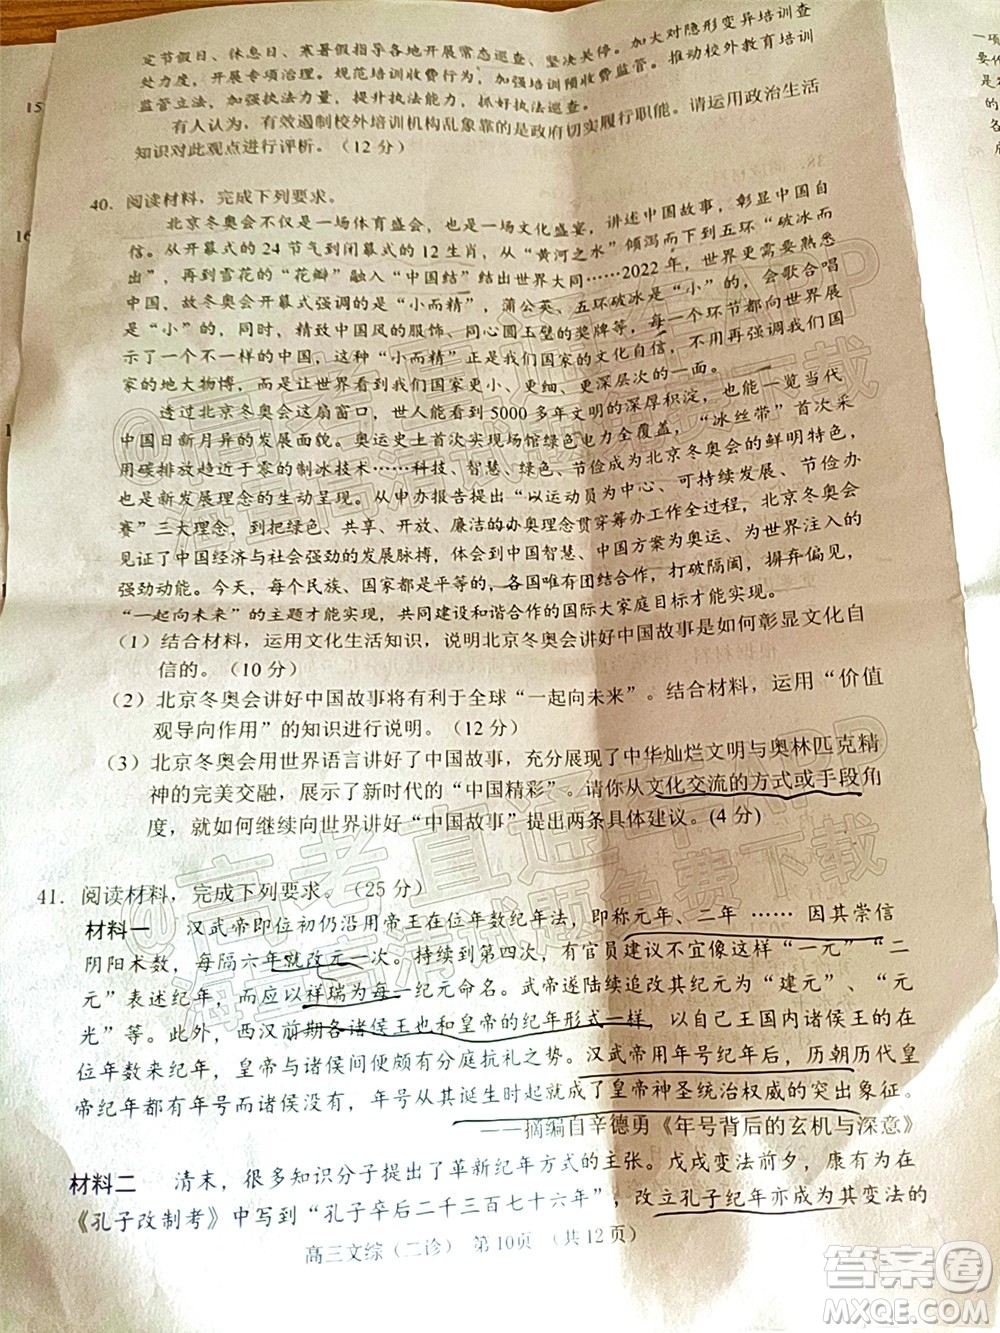 定节假日、休息日、寒暑假指导各地开展常态巡查、坚决关停。加大对隐形变异培训查
处力度，开展专项治理。规范培训收费行为，加强培训预收费监管。推动校外教育培训
监管立法，加强执法力量，提升执法能力，抓好执法巡查。
有人认为，有效遏制校外培训机构乱象靠的是政府切实履行职能。请运用政治生活
知识对此观点进行评析。（12 分）
40．阅读材料，完成下列要求。
北京冬奥会不仅是一场体育盛会，也是一场文化盛宴，讲述中国故事，彰显中国自
信。从开幕式的 24 节气到闭幕式的 12 生肖，从“黄河之水”倾泻而下到五环“破冰而
出”，再到雪花的“花瓣”融入“中国结”结出世界大同……2022 年，世界更需要熟悉
中国，故冬奥会开幕式强调的是“小而精”，蒲公英、五环破冰是“小”的，会歌合唱
是“小”的，同时，精致中国风的服饰、同心圆玉璧的奖牌等，每一个环节都向世界展
示了一个不一样的中国，这种“小而精”正是我们国家的文化自信，不用再强调我们国
家的地大物博，而是让世界看到我们国家更小、更细、更深层次的一面。
透过北京冬奥会这扇窗口，世人能看到 5000 多年文明的深厚积淀，也能一览当代
中国日新月异的发展面貌。奥运史上首次实现场馆绿色电力全覆盖，“冰丝带”首次采
用碳排放趋近于零的制冰技术……科技、智慧、绿色、节俭成为北京冬奥会的鲜明特色，
是新发展理念的生动呈现。从申办报告提出“以运动员为中心、可持续发展、节俭办
赛”三大理念，到把绿色、共享、开放、廉洁的办奥理念贯穿筹办工作全过程，北京冬奥会
见证了中国经济与社会强劲的发展脉搏，体会到中国智慧、中国方案为奥运、为世界注入
强劲动能。今天，每个民族、国家都是平等的，各国加强合作，打破隔阂，摒弃偏见，
“一起向未来”的主题才能实现，共同建设和谐合作的国际大家庭目标才能实现。
（1）结合材料，运用文化生活知识，说明北京冬奥会讲好中国故事是如何彰显文化自
信的。（10 分）
（2）北京冬奥会讲好中国故事将有利于全球“一起向未来”。结合材料，运用“价值
观导向作用”的知识进行说明。（12 分）
（3）北京冬奥会用世界语言讲好了中国故事，充分展现了中华灿烂文明与奥林匹克精
神的完美交融，展示了新时代的“中国精彩”。请你从文化交流的方式或手段角
度，就如何继续向世界讲好“中国故事”提出两条具体建议。(4 分)
41．阅读材料，完成下列要求。（25 分）
材料一 汉武帝即位初仍沿用帝王在位年数纪年法，即称元年、二年 …… 因其崇信
阴阳术数，每隔六年就改元一次。持续到第四次，有官员建议不宜像这样“一元”“二
元”表述纪年，而应以祥瑞为每一纪元命名。武帝遂陆续追改其纪元为“建元”、“元
光”等。此外，西汉前期各诸侯王也和皇帝的纪年形式一样，以自己王国内诸侯王的在
位年数来纪年，皇帝与诸侯间便颇有分庭抗礼之势。汉武帝用年号纪年后，历朝历代皇
帝纪年都有年号而诸侯没有，年号从其诞生时起就成了皇帝神圣统治权威的突出象征。
——摘编自辛德勇《年号背后的玄机与深意》
材料二 清末，很多知识分子提出了革新纪年方式的主张。戊戌变法前夕，康有为的
《孔子改制考》中写到“孔子卒后二千三百七十六年”，改立孔子纪年亦成为其变法的
高三文综（二诊） 第 10页 （共 12 页）
15
16
1
答案圈
MXQE.COM